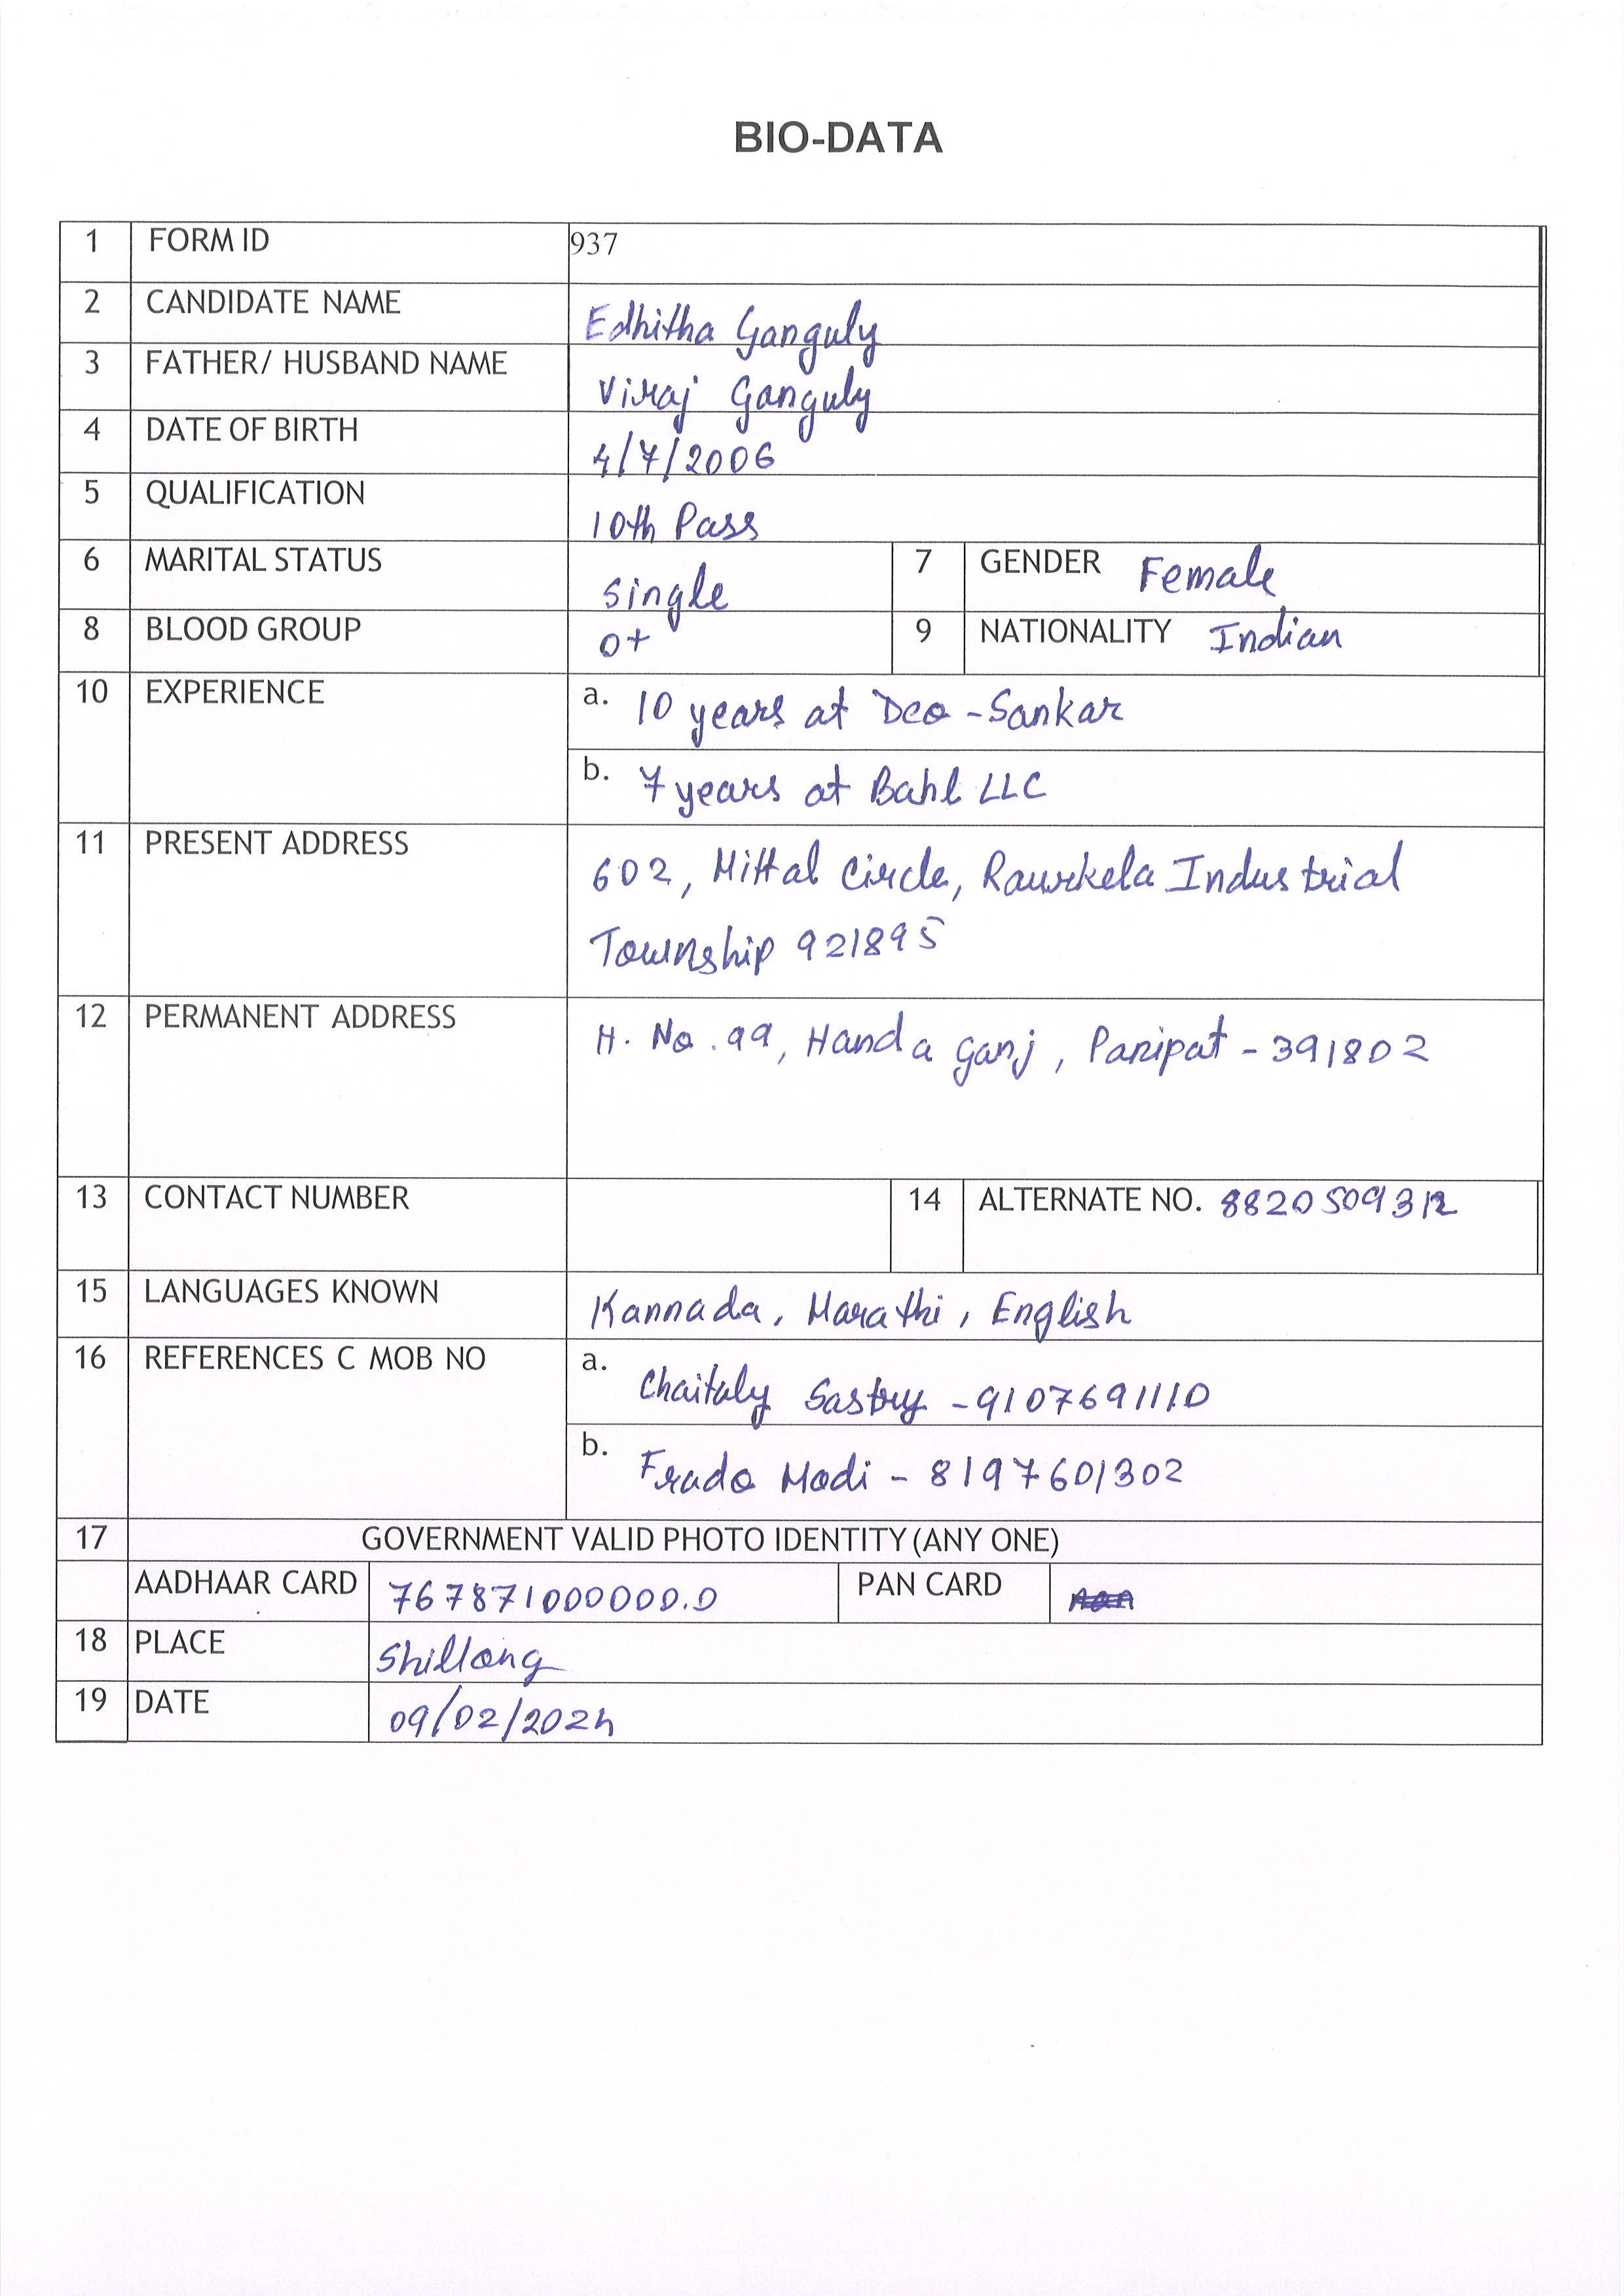 BIO-DATA
1 FORM ID 937
2 CANDIDATE NAME Edhitha Ganguly
3 FATHER/ HUSBAND NAME Viraj Ganguly
4 DATE OF BIRTH 4/7/2006
5 QUALIFICATION 10th Pass
6 MARITAL STATUS Single 7 GENDER Female
8 BLOOD GROUP O+ 9 NATIONALITY Indian
10 EXPERIENCE a. 10 years at Deo-Sankar
b. 7 years at Bahl LLC
11 PRESENT ADDRESS 602, Mittal Circle, Raurkela Industrial
Township 921895
12 PERMANENT ADDRESS H. No. 99, Handa Ganj, Panipat - 391802
13 CONTACT NUMBER 14 ALTERNATE NO. 8820509312
15 LANGUAGES KNOWN Kannada, Marathi, English
16 REFERENCES C MOB NO a. Chaitaly Sastry - 9107691110
b. Frado Modi - 8197601302
17 GOVERNMENT VALID PHOTO IDENTITY (ANY ONE)
AADHAAR CARD 767871000000.0 PAN CARD
18 PLACE Shillong
19 DATE 09/02/2024